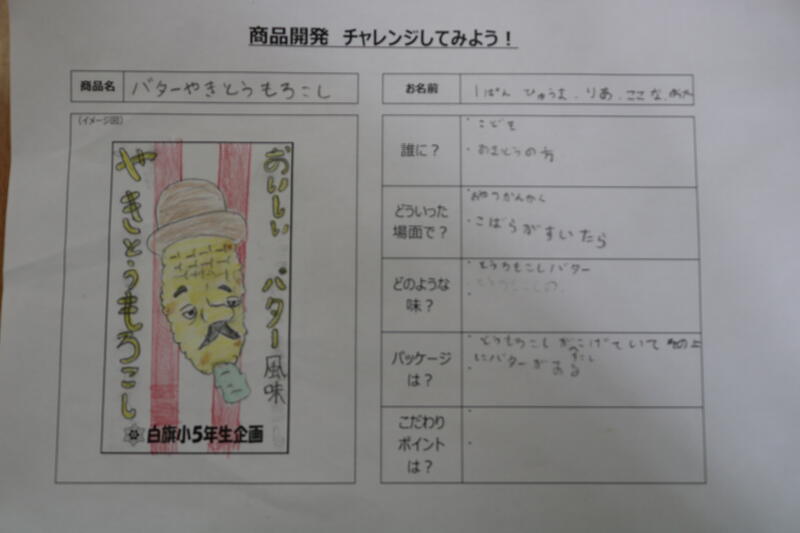 商品開発 チャレンジしてみよう!
商品名 バターやきとうもろこし
お名前 1ぱん ひゅうま、りあ、ここな、
(イメージ図)
おいしい バター風味
やきとうもろこし
白旗小5年生企画
誰に?
・こども
・おさとうの方
どういった場面で?
・おやつかんかく
・こばらがすいたら
どのような味?
・とうもろこしバター
・
パッケージは?
・とうもろこしがこげていて
にバターがある
こだわりポイントは?
・